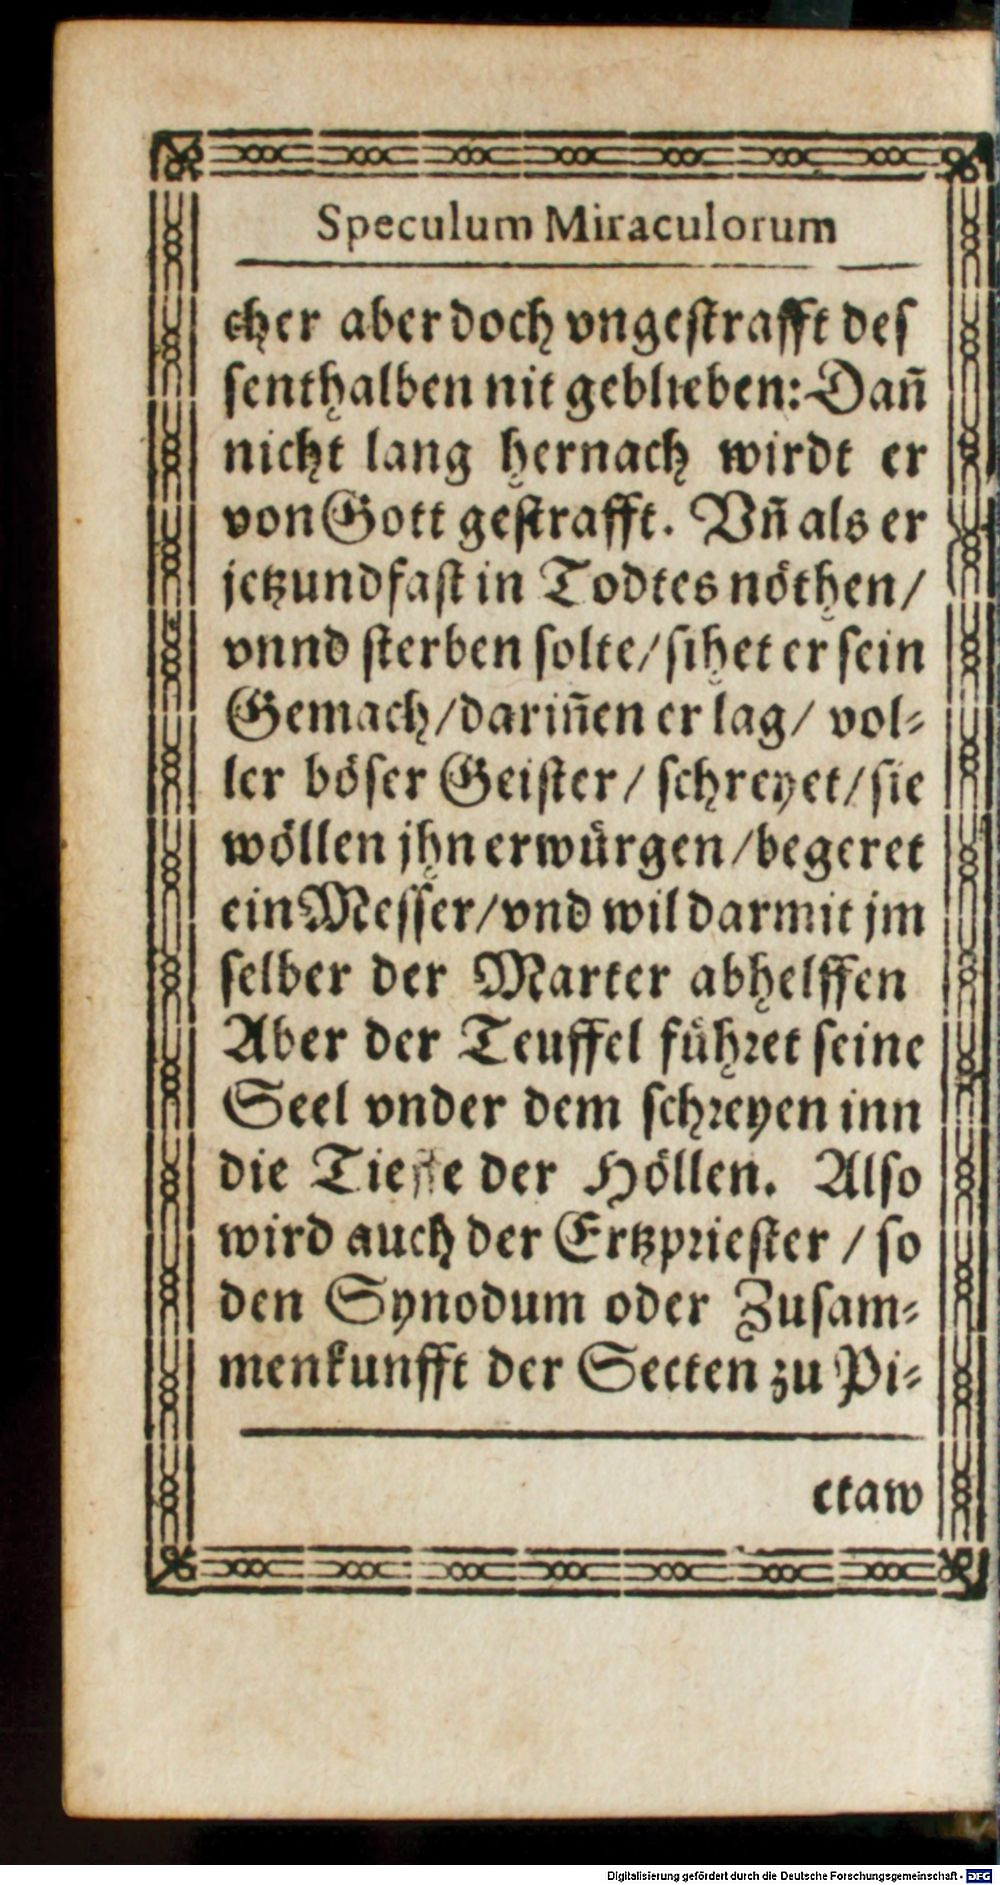 Speculum Miraculorum
cher aber doch vngestrafft des
senthalben nit geblieben: Dañ
nicht lang hernach wirdt er
von Gott gestrafft. Vñ als er
jetzund fast in Todtes nöthen/
vnnd sterben solte/ sihet er sein
Gemach/ dariñen er lag/ vol-
ler böser Geister/ schreyet/ sie
wöllen jhn erwürgen/ begeret
ein Messer/ vnd wil darmit jm
selber der Marter abhelffen
Aber der Teuffel führet seine
Seel vnder dem schreyen inn
die Tieffe der Höllen. Also
wird auch der Ertzpriester / so
den Synodum oder Zusam-
menkunfft der Secten zu Pi-
ctaw
Digitalisierung gefördert durch die Deutsche Forschungsgemeinschaft - DFG